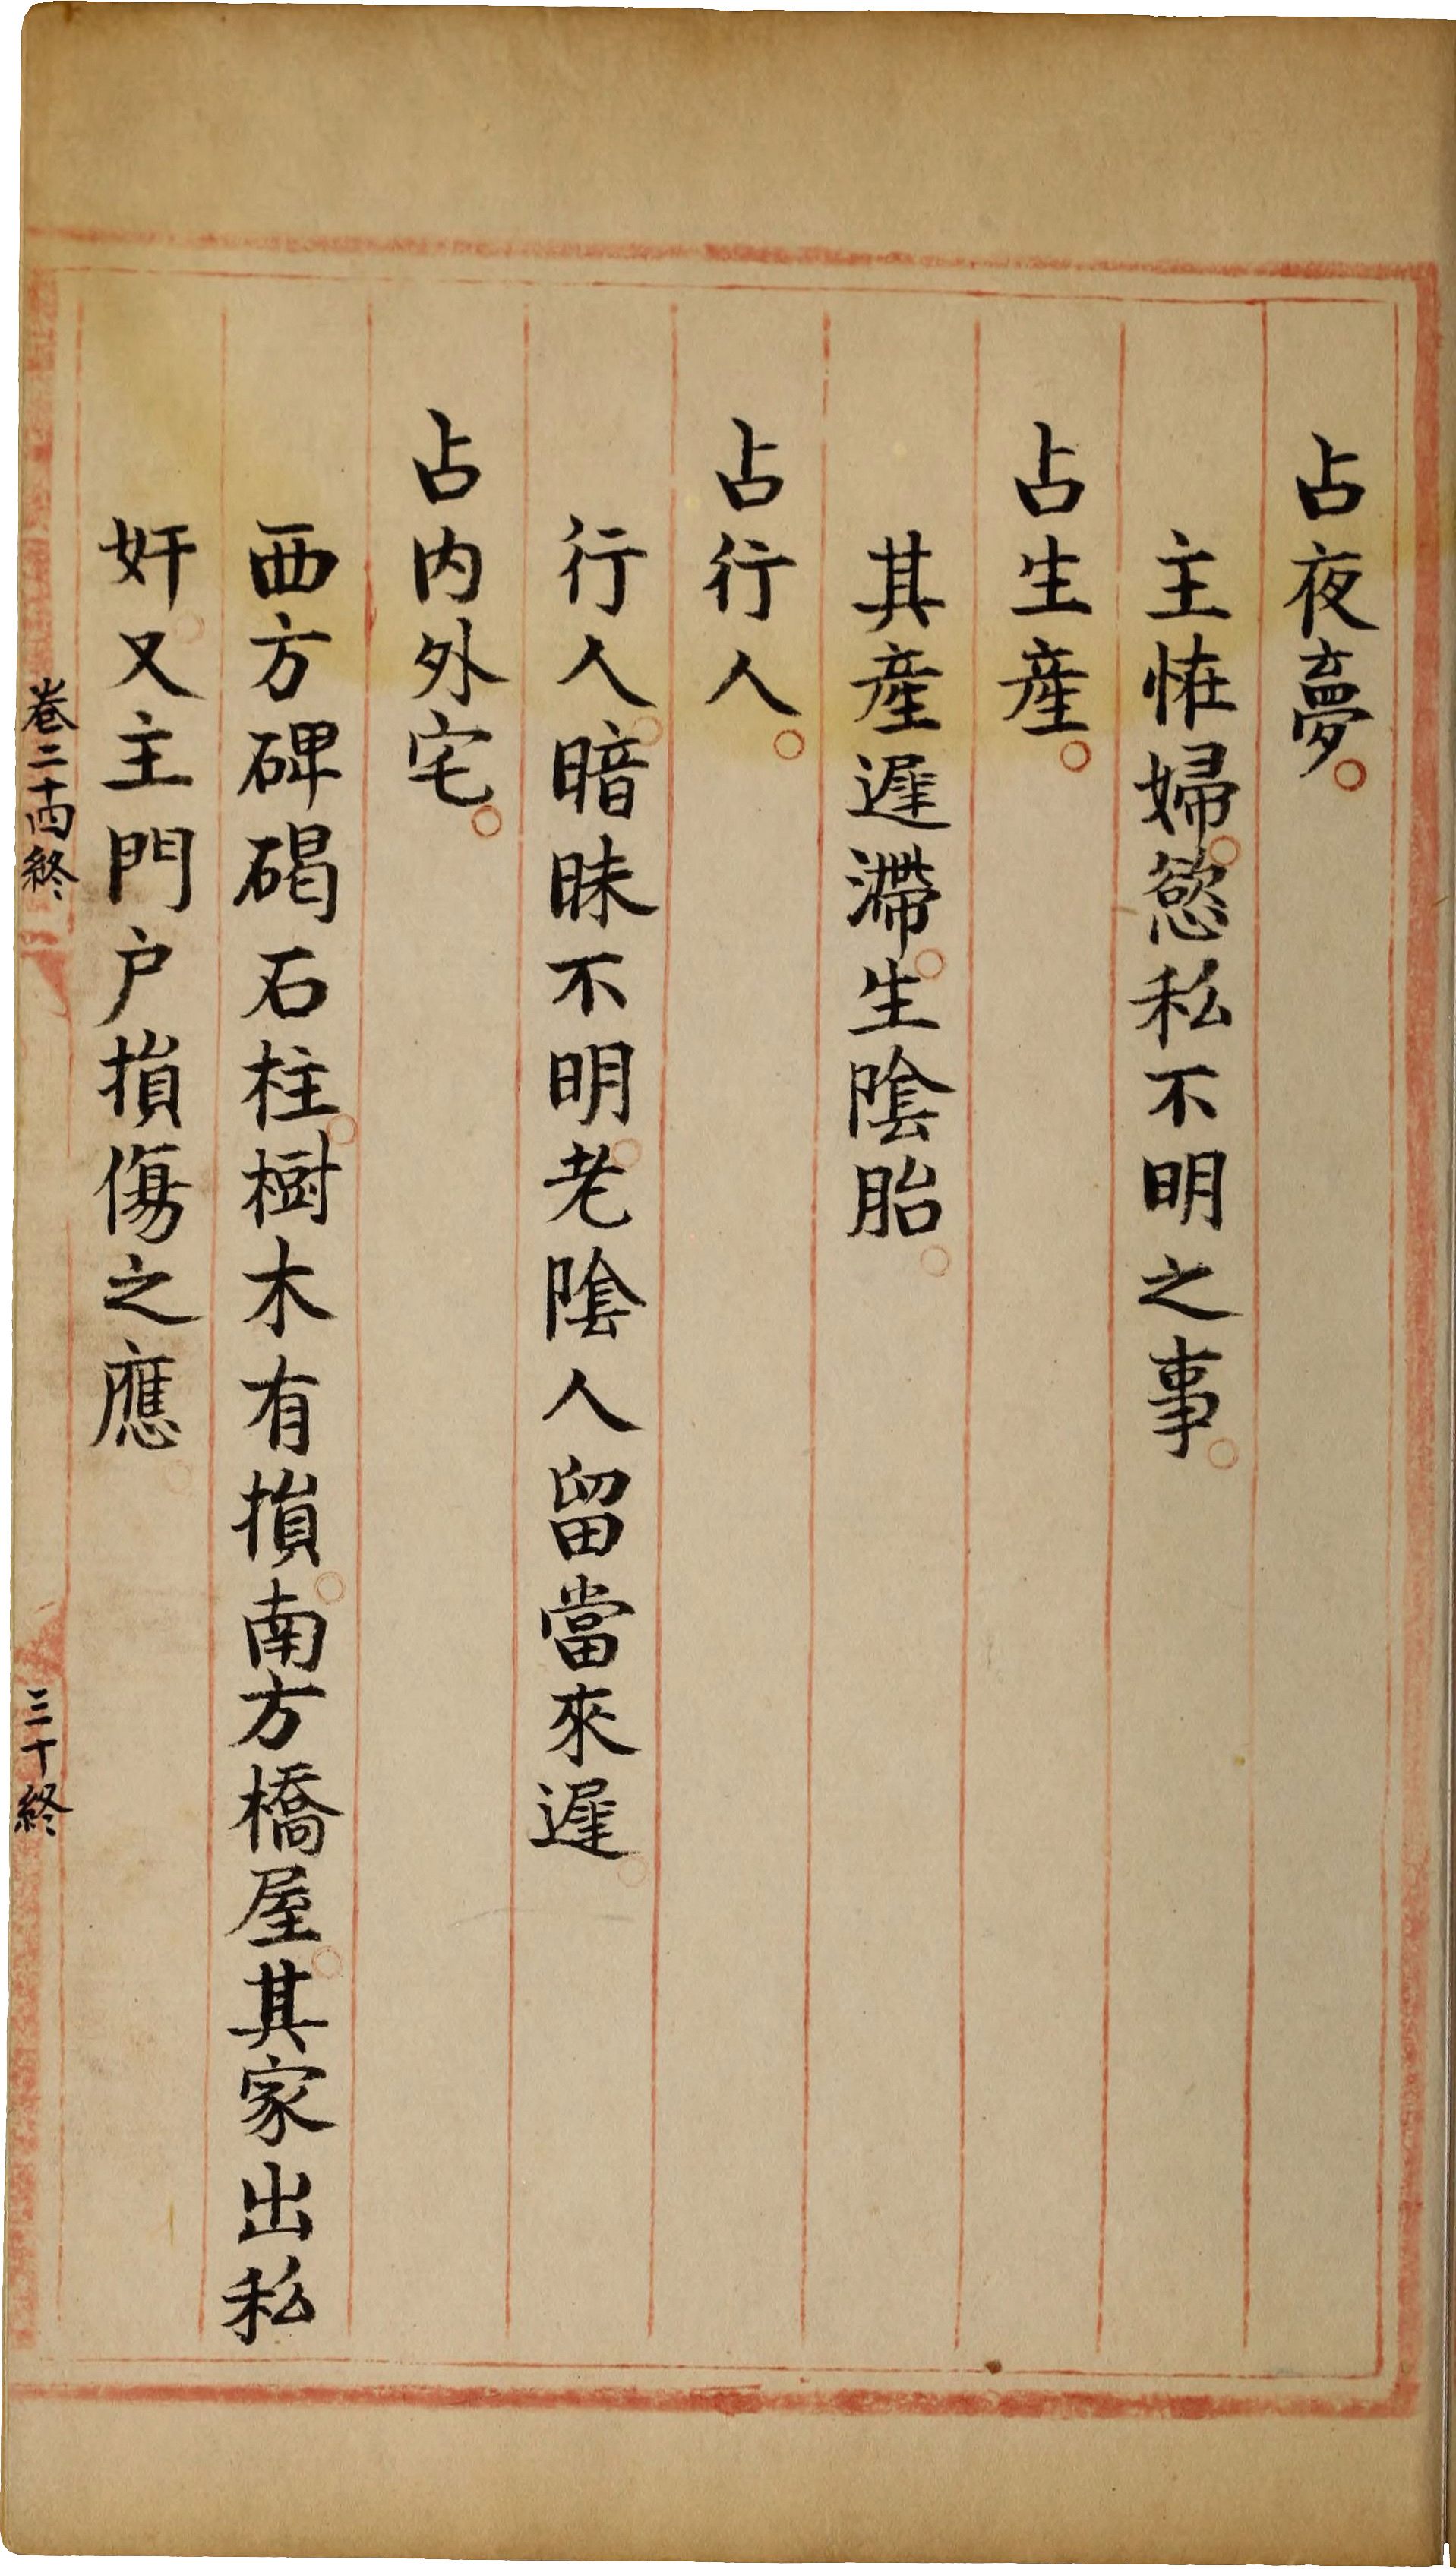 占夜夢。
主恠婦。慾私不明之事。
占生產。
其產遲滯。生陰胎。
占行人。
行人。暗昧不明。老陰人留當來遲。
占內外宅。
西方碑碣石柱。樹木有損。南方橋屋。其家出私
奸。又主門户損傷之應。
卷二十四終
三十終